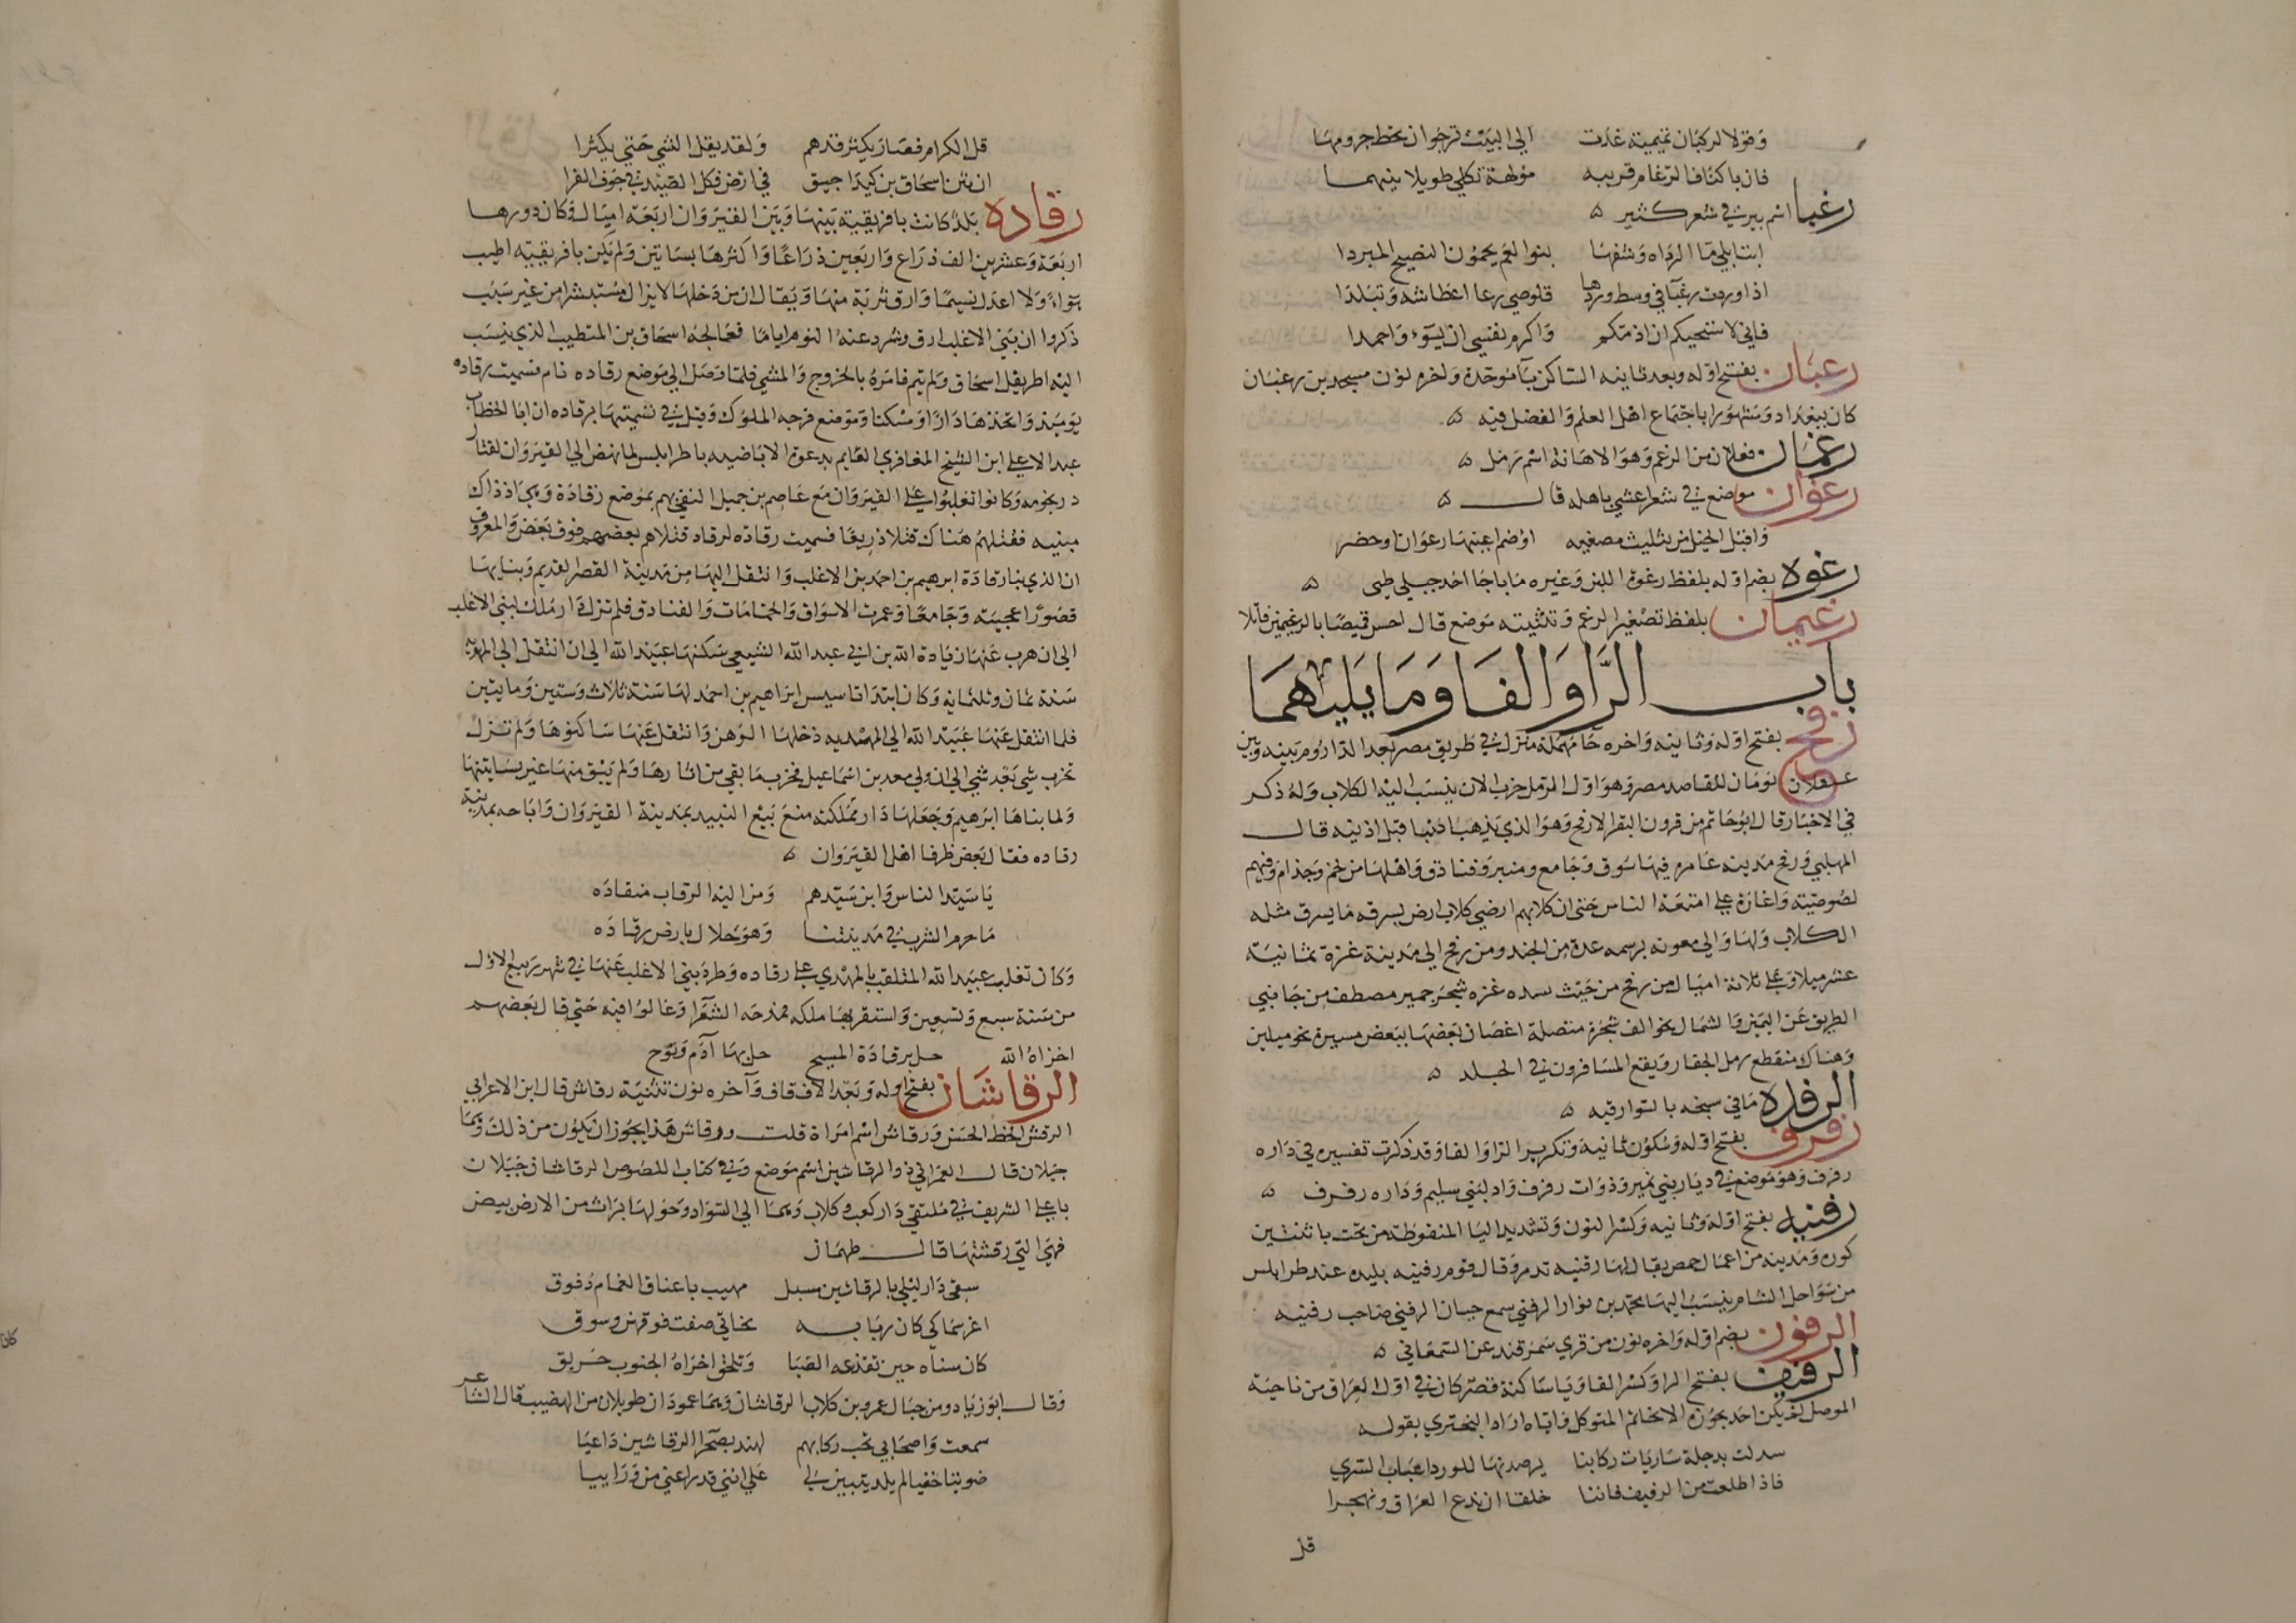 وقولا لركبان تميمية غدت الى البيت ترجوا ان تحط جرومها
فان باكناف الرغام قريبه مولهة ثكلي طويلا ينهما
رغبا اسم بير في شعر كثير ه
ابت ابلي ما الرداه وشفها بنوا العم يحمون النضيح المبردا
اذا وردت رغبا في وسط وردها قلوصي رعا اعطاشه وتبلدا
فاني لاستحييكم ان اذمكم واكرم نفسي ان يسوء واحمدا
رغبان بفتح اوله وبعد ثانيه الساكن باء موحدة واخره نون مسجد بن رغبان
كان ببغداد ومشهورا باجتماع اهل العلم والفضل فيه ه
رغمان فعلان من الرغم وهو الاهانة اسم رمل ه
رغوان موضع في شعر اعشي باهله قال ه
واقبل الخيل من تثليث مصغيه اوضم اعينها رعوان او حضر
رغوة بضم اوله بلفظ رغوة اللبن وغيره ما باجا احد جبلي طي ه
رغيمان بلفظ تصغير الرغم وتثنيته موضع قال احس قنيصا بالرغيمين قاتلا
باب الراو الفا وما يليهما
رفح بفتح اوله وثانيه واخره حا مهملة منزل في طريق مصر بعد الداروم بينه وبين
عسقلان يومان للقاصد مصر وهو اول الرمل خرب الان ينسب اليه الكلاب وله ذكر
في الاخبار قال ابو حاتم من قرون البقر الارفح وهو الذي يذهب اذنها قبل اذنيه قال
المهلبي ورفح مدينه عامره فيها سوق وجامع ومنبر وفنادق واهلها من لخم وجذام وفيهم
لصوصيته واغارة على امتعة الناس حتى ان كلابهم ارضى كلاب ارض بسرقه ما يسرق مثله
الكلاب ولها والي معونه برسمه عدة من الجند ومن رفح الى مدينة غزة ثمانيه
عشر ميلا وعلى ثلاثة اميال من رفح من جيث سده غزه شجر جميز مصطف من جانبي
الطريق عن اليمين والشمال نحو الف شجرة متصلة اغصان بعضها ببعض مسيرة نحو ميلين
وهناك منقطع رمل الجفار ويقع المسافرون في الجلد ه
الرفدة ما في سبخه بالسوارقيه ه
رفرف بفتح اوله وسكون ثانيه وتكرير الرا والفا وقد ذكرت تفسيره في داره
رفرف وهو موضع في ديار بني نمير وذوات رفرف واد لبني سليم وداره رفرف ه
رفنيه بفتح اوله وثانيه وكسر النون وتشديد اليا المنقوطة من تحت باثنتين
كوره ومدينه من اعمال حمص يقال لها رفنيه تدمر وقال قوم رفنيه بليده عند طرابلس
من سواحل الشام ينسب اليها محمد بن نوار الرفني سمع حيان الرفني صاحب رفنيه
الرفون بضم اوله واخره نون من قري سمرقند عن السمعاني ه
الرفيف بفتح الرا وكسر الفا ويا ساكنة قصر كان في اول العراق من ناحية
الموصل لم يكن احد يجوزه الا بخاتم المتوكل واياه اراد البحتري بقوله
سدلت بدجلة ساريات ركابنا يرصدنها للورد اغباب السري
فاذا طلعت من الرفيف فاننا خلقا ان ندع العراق ونهجرا
قل
قل الكرام فصار يكثر فدهم ولقد يقل الشي حتى يكثرا
ان شن اسحاق بن كيداجيق في ارض فكل الصيد في جوف الفرا
رقاده بلدة كانت بافريقيه بينها وبين القيروان اربعة اميال وكان دورها
اربعة وعشرين الف ذراع واربعين ذراعا واكثرها بساتين ولم يكن بافريقيه اطيب
هواء ولا اعدل نسيما وارق تربة منها ويقال ان من دخلها لا يزال مستبشرا من غير سبب
ذكروا ان بني الاغلب ارق وشرد عنه النوم اياما فعالجه اسحاق بن المتطبب الذي ينسب
اليه اطريفل اسحاق ولم ينم فامره بالخروج والمشي فلما وصل الى موضع رقاده نام فسميت رقاده
يوميذ واتخذها دارا ومسكنا وموضع فرجه الملوك وقيل في تسميتها برقاده ان ابا الخطاب
عبد الاعلى ابن الشيخ المعافري القايم بدعوة الاباضيه باطرابلس لما نهض الى القيروان لقتال
درنجومه وكانوا تغلبوا على القيروان مع عاصم بن جميل التقى بهم بموضع رقادة وهي اذذاك
منيه فقتلهم هناك قتلا ذريعا فسميت رقاده لرقاد قتلاهم بعضهم فوق بعض والمعروف
ان الذي بنا رقادة ابرهيم بن احمد بن الاغلب وانتقل اليها من مدينة القصر القديم وبنا بها
قصورا عجيبه وجامعا وعمرت الاسواق والحمامات والفنادق فلم تزل دار ملك لبني الاغلب
الى ان هرب عنها زيادة الله بن ابي عبد الله الشيعي سكنها عبيد الله الى ان انتقل الى المهدية
سنة ثمان وثلثماية وكان ابتدا تاسيس ابراهيم بن احمد لها سنة ثلاث وستين ومايتين
فلما انتقل عنها عبيد الله الى المهديه دخلها الوهن وانتقل عنها ساكنوها ولم تزل
تخرب شي بعد شي الى ان ولي معد بن اسماعيل فخرب ما بقي من اثارها ولم يبق منها غير بساتينها
ولما بناها ابرهيم وجعلها دار مملكته منع بيع النبيد بمدينة القيروان واباحه بمدينة
رقاده فقال بعض ظرفا اهل القيروان ه
يا سيد الناس وابن سيدهم ومن اليه الرقاب منقاده
ما حرم الشرب في مدينتنا وهو حلال بارض رقاده
وكان تغلب عبيد الله الملقب بالمهدي على رقاده وطرد بني الاغلب عنها في شهر ربيع الاول
من سنة سبع وتسعين واستقر بها ملكه فمدحه الشعرا وغالوا فيه حتى قال بعضهم
اخزاه الله حل برقادة المسيح حل بها آدم ونوح
الرقاشان بفتح اوله وبعد الالف قاف وآخره نون تثنية رقاش قال ابن الاعرابي
الرقش الخط الحسن ورقاش اسم امراة قلت ورقاش هذا يجوز ان يكون من ذلك وهما
جبلان قال العمراني ذو الرقاشين اسم موضع وفي كتاب اللصوص الرقاشان جبلان
باعلى الشريف في ملتقى دار كعب وكلاب وهما الى السواد وحولها براث من الارض بيض
فهي التي رقشتها قال طهمان
سقى دار ليلى بالرقاشين مسبل مهيب باعناق الغمام دفوق
اغر سماكي كان ربابه بخاتي صفت فوقهن وسوق
كان سناه حين تقذعه الصبا وتلحق اخراه الجنوب حريق
وقال ابو زياد ومن جبال عمرو بن كلاب الرقاشان وهما عمودان طويلان من الهضب قال الشاعر
سمعت واصحابي تخب ركابهم لهند بصحرا الرقاشين داعيا
ضويتا خفيا لم يلد يتبين لي على انني قد راعني من وراييا